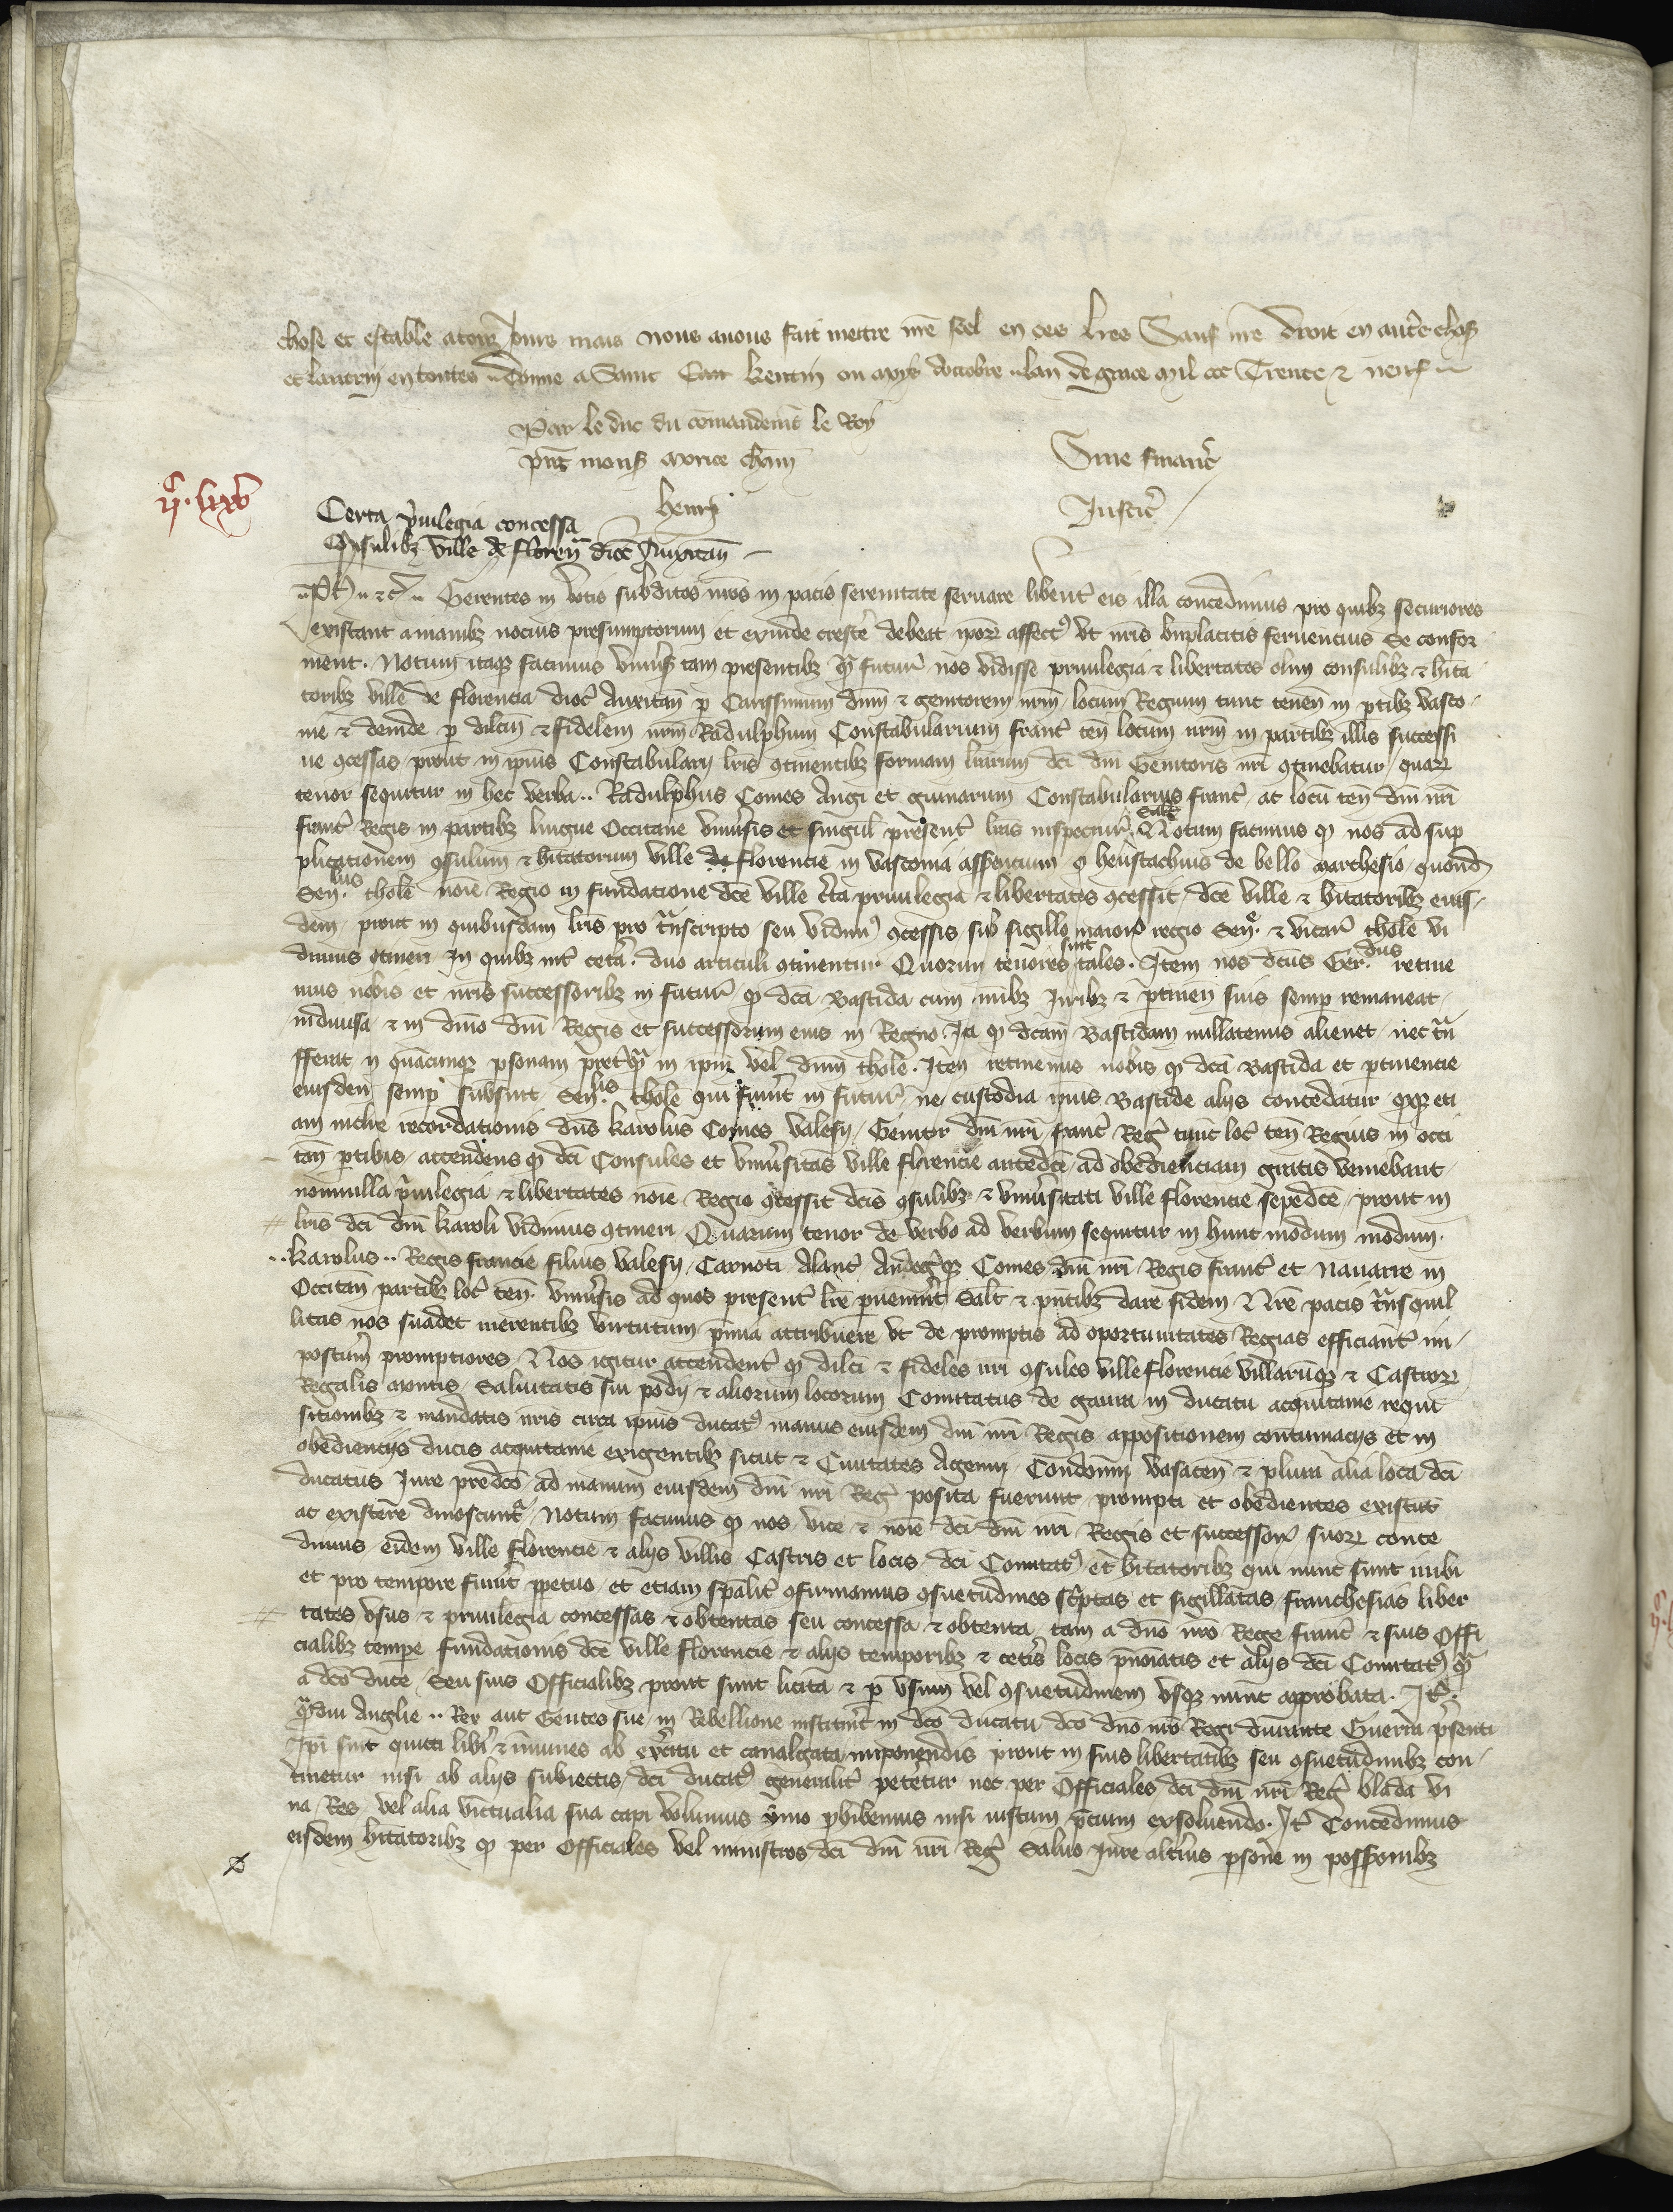 chose et estable a touz jours mais nous avons fait mettre nre seel en ces lres Sauf nre droit en autre chose
et lautrui en toutes Donne a Saint Quentin ou moys doctobre lan de grace mil ccc Trente & neuf
Par le duc du comandement le Roy
pnt mons
Sine financ
henry
Justic
ijc. lxxv
Certa pvilegia concessa
Consulibz ville de Floren dioc Auxitan
Ph & c Gerentes in votis subditos nros in pacis serenitate servare libent eis illa concedimus pro quibz securiores
existant a manibz nocius presumptorum et exinde crescere debeat ipor affectus ut nris bnplacitis fervencius se confor
ment. Notum itaqz facimus univsis tam presentibz qm futur nos vidisse privilegia & libertates olim consulibz & hita
toribz ville de florencia dioc Auxitan p Carissimum dnm & genitorem nrm locum Regium tunc tenen in ptibz vasco
nie & deinde p dilcm & fidelem nrm Radulphum Constabularium franc ten locum nrm in partibz illis successi
ve concessas prout in ipius Constabularij lris continentibz formam lrarum dci dni Genitoris nri continebatur quar
tenor sequitur in hec verba Radulphus Comes Augi et guinarum Constabularius franc ac locu ten dni nri
franc Regis in partibz lingue Occitane univsis et singul present lras inspectur Salt Notum facimus q nos ad sup
plicationem consulum & hitatorum ville de florencie in vasconia asserencium q heustachius de bello marchesio quond
Senlus thole noie Regio in fundatione dce ville certa privilegia & libertates concessit dce ville & hitatoribz eius
dem prout in quibusdam lris pro transcripto seu vidimus concessis sub sigillo maiori regio Sen & vicar thole vi
dimus contineri In quibz int cetera duo articuli continentur Quorum tenores sunt tales. Item nos dcus Senlus retine
mus nobis et nris successoribz in futur q dca Bastida cum omibz Juribz & ptinen suis semp remaneat
indivisa & in dnio dni Regis et successorum eius in Regno. Ita q dcam Bastidam nullatenus alienet nec tran
fferat in quacunqz psonam preterqm in ipm vel dnm thole. Item retinemus nobis q dca Bastida et ptinencie
eiusdem semp subsint Senlis thole qui fuerint in futur ne custodia ipius Bastide alijs concedatur qz eti
am inclite recordationis dns karolus Comes valesij Genitor dni nri franc Reg tunc loc ten Regius in occi
tan ptibus attendens q dci Consules et univsitas ville florencie antedce ad obedienciam gratis veniebant
nonnulla privilegia & libertates noie Regio concessit dcis consulibz & univsitati ville florencie sepedce prout in
lris dci dni karoli vidimus contineri Quarum tenor de verbo ad verbum sequitur in hunc modum modum.
karolus Regis francie filius valesij Carnoti Alanc Andegqz Comes dni nri Regis franc et Navarre in
Occitan partibz loc ten univsis ad quos present lre pvenerint Salt & pntibz dare fidem Nre pacis transquil
litas nos suadet merentibz virtutum pmia attribuere ut de promptis ad oportunitates Regias efficiant im
postum promptiores Nos igitur attendent q dilci & fideles nri consules ville florencie villarumqz & Castror
Regalis montis Salvitatis sui podij & aliorum locorum Comitatus de gaura in ducatu acquitanie requi
sitionibz & mandatis nris circa ipius ducatus manus eiusdem dni nri Regis appositionem contumacijs et in
obediencijs ducis acquitanie exigentibz sicut & Civitates Agenni Condonni vasaten & plura alia loca dci
ducatus Jure predco ad manum eiusdem dni nri Reg posita fuerunt prompti et obedientes existut
ac existere dinoscuntr Notum facimus q nos vice & noie dci dni nri Regis et successor suor conce
dimus eidem ville florencie & alijs villis Castris et locis dci Comitatus et hitatoribz qui nunc sunt inibi
et pro tempore fuerint ppetuo et etiam spalit confirmamus consuetudines scriptas et sigillatas franchesias liber
tates usus & privilegia concessas & obtentas seu concessa & obtenta tam a dno nro Rege franc & suis Offi
cialibz tempe fundationis dce ville florencie & alijs temporibz & ceteris locis pnoiatis et alijs dci Comitatus qm
a dco duce seu suis Officialibz prout sunt licita & p usum vel consuetudinem usqz nunc approbata. Itm
qmdiu Anglie Rex aut Gentes sue in Rebellione instituit in dco ducatu dco dno nro Regi durante Guerra psenti
Ipi sint quitti libi & inmunes ab exercitu et cavalgata imponendis prout in suis libertatibz seu consuetudinibz con
tinetur nisi ab alijs subiectis dci ducatus generalit petetur nec per Officiales dci dni nri Reg blada vi
na Res vel alia victualia sua capi volumus ymo phibemus nisi iustum pcium exsolvendo. It Concedimus
eisdem hitatoribz q per Officiales vel ministros dci dni nri Reg Salvo Jure alterius psone in possionibz